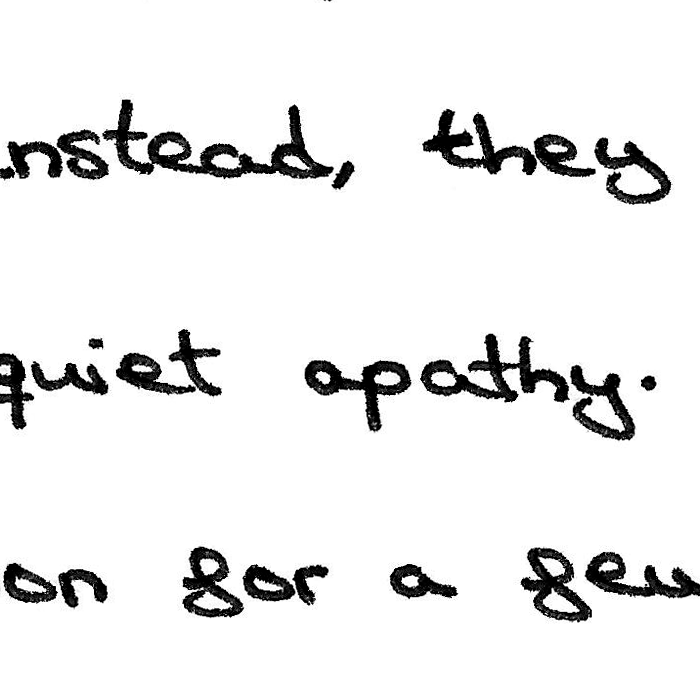 nstead, they
quiet apathy.
on for a few